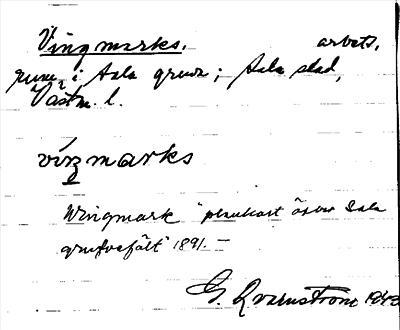 Vingmarks. arbets,
rum i Sala gruva; Sala stad,
Västm. l.
vingmarks
Wingmark "plankart över Sala
grufvefält" 1891. –
G. Qvarnström 1943